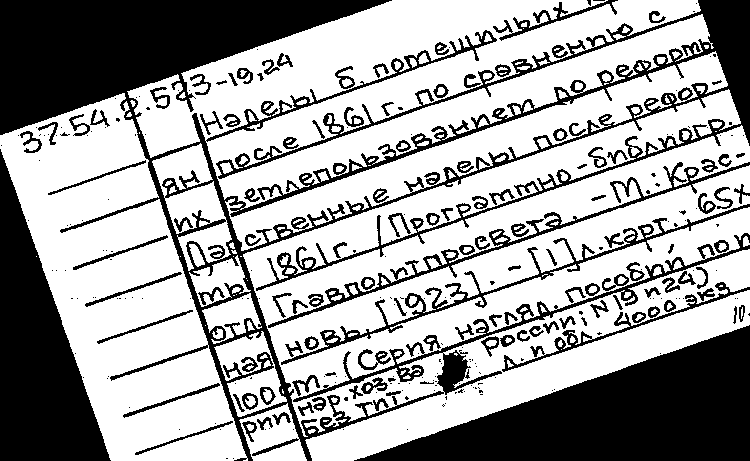 37-54.2.523-19,24
Наделы б. помещичьих к
ян после 1861 г. по сравнению с
их землепользованием до реформы
Дарственные наделы после рефор-
мы 1861 г. / Программно-библиогр.
отд. Главполитпросвета. - М.: Крас-
ная новь, [1923]. - [1] л. карт.; 65Х
100 см. - (Серия нагляд. пособий по и
рии нар. хоз-ва России; N 19 и 24)
Без тит. л. и обл. 4000 экз
10.